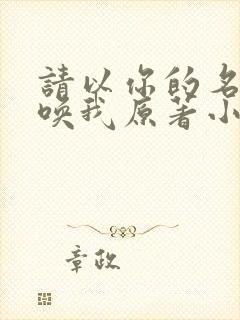 請以你的名
喚我原著小
章政